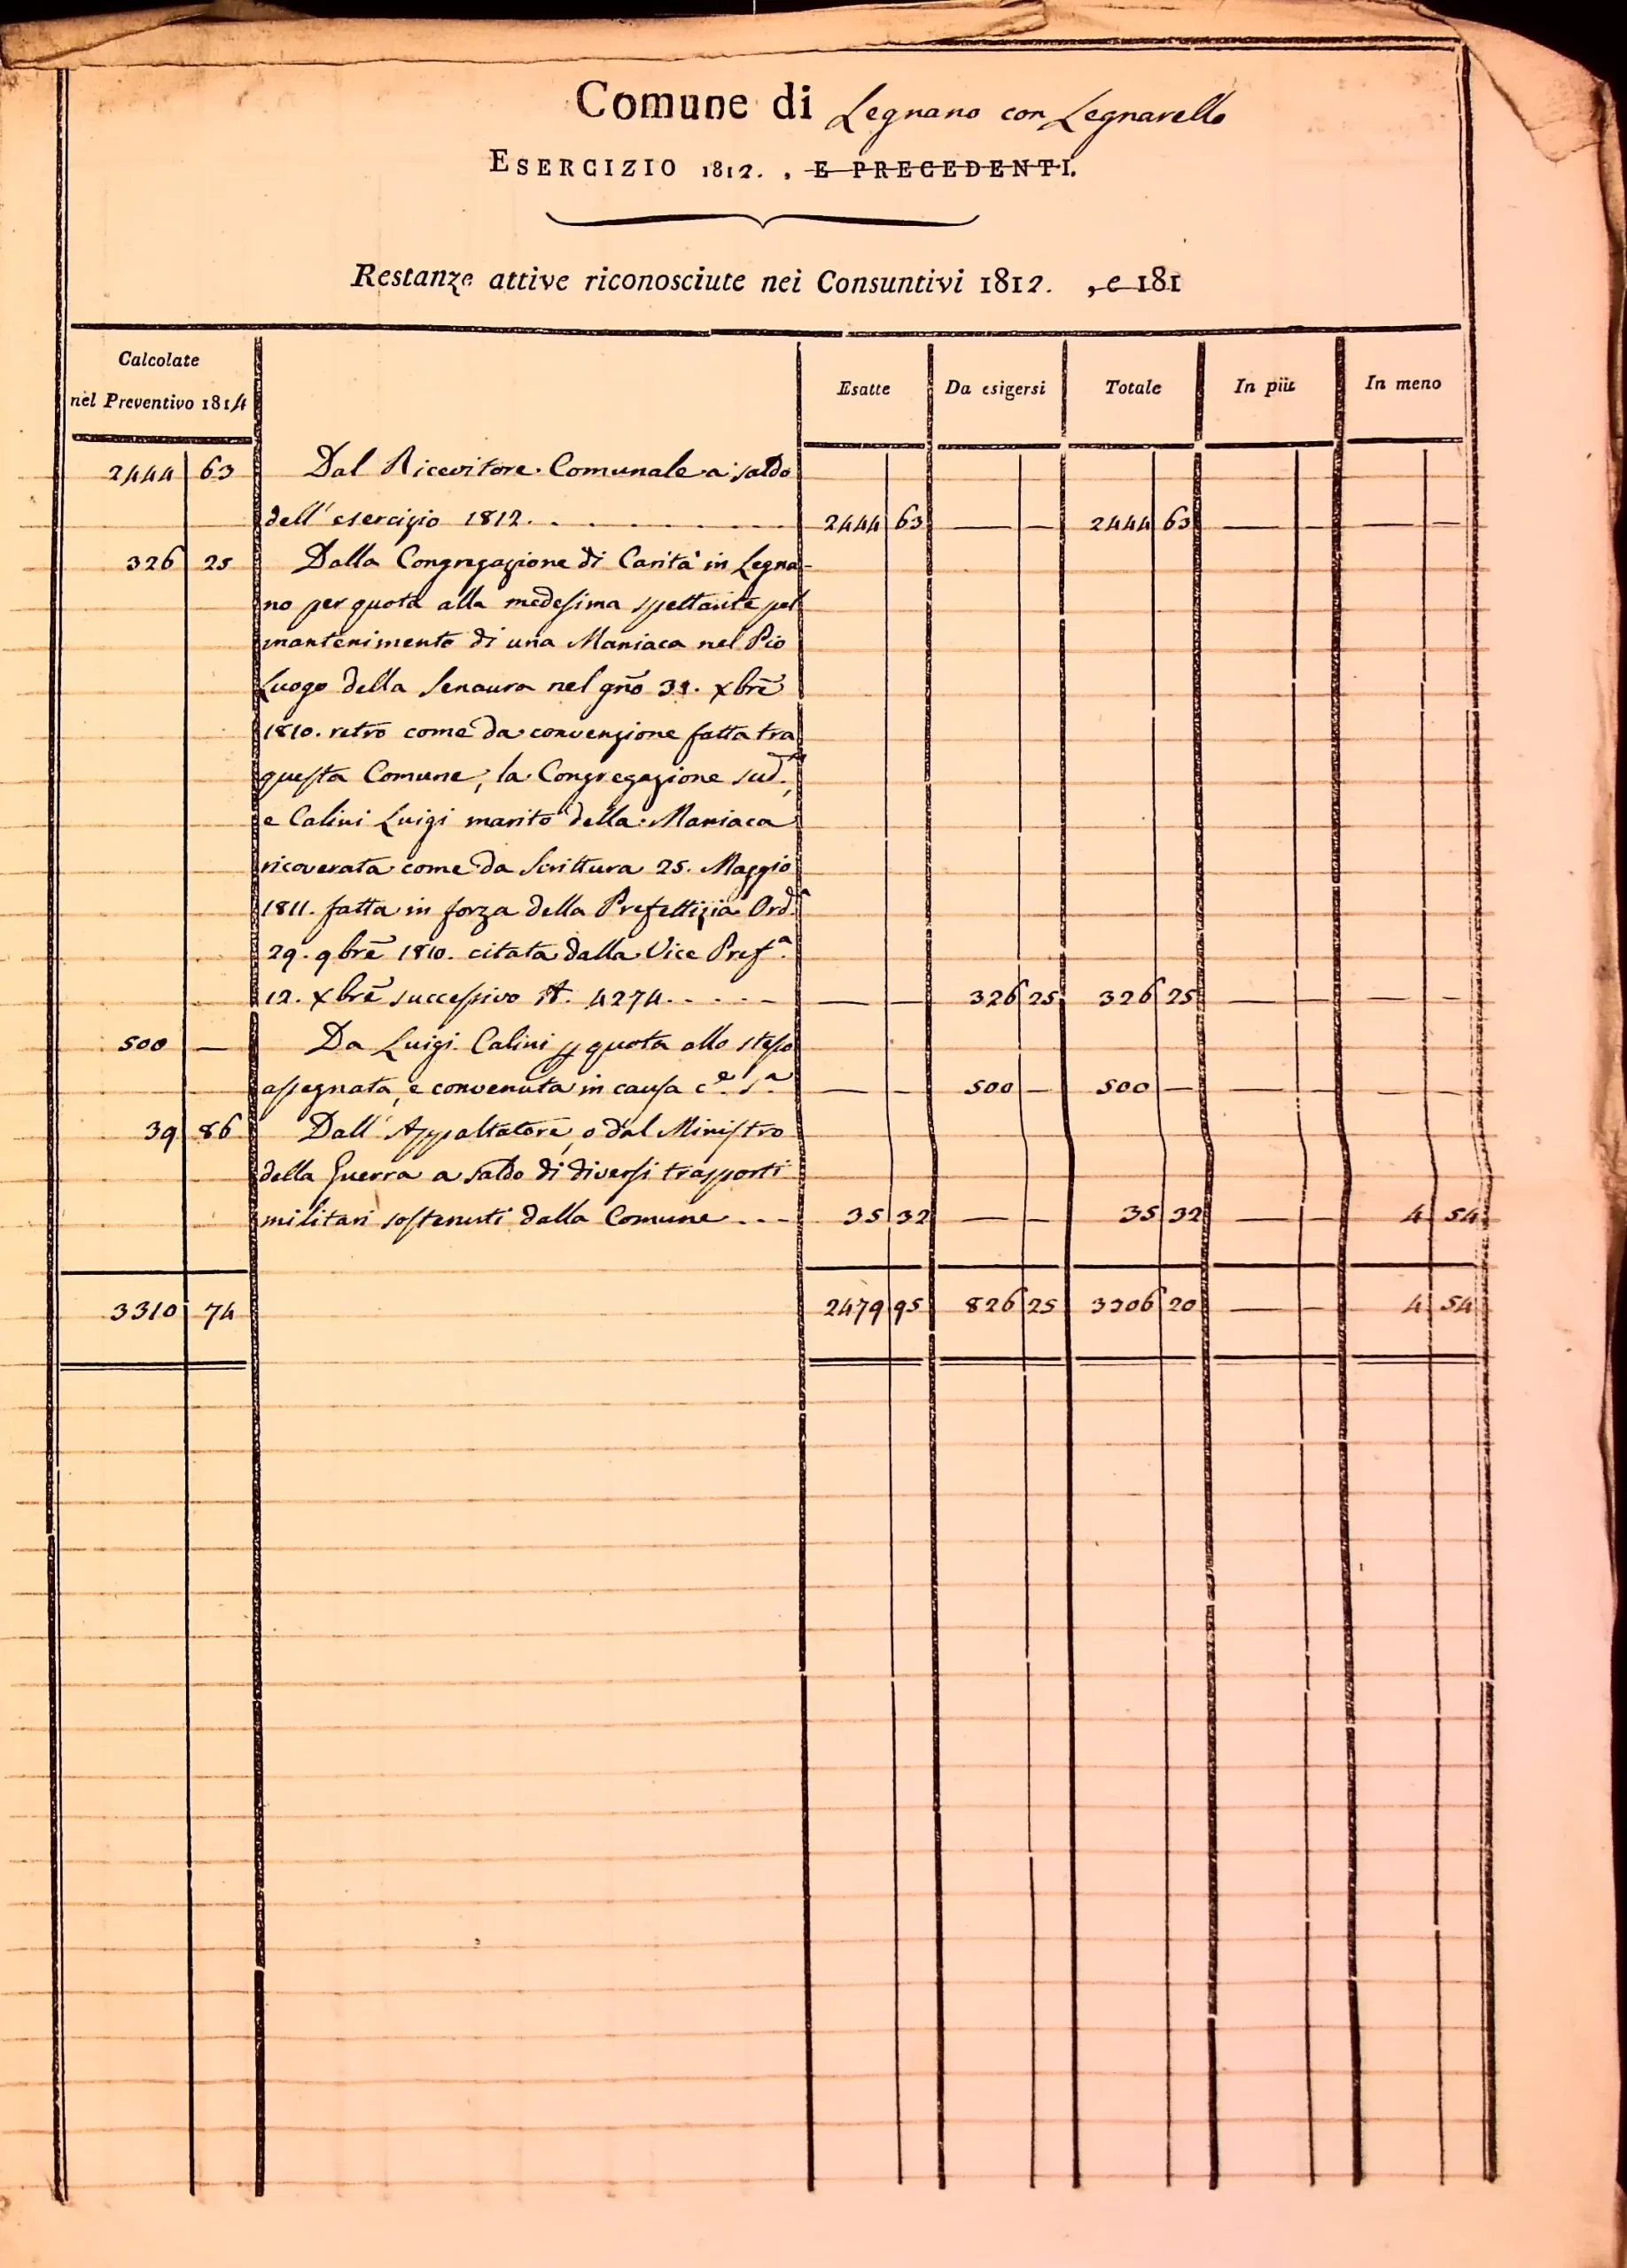 Comune di Legnano con Legnarello
ESERCIZIO 1812. , E PRECEDENTI.
Restanze attive riconosciute nei Consuntivi 1812. , e 181
Calcolate
nel Preventivo 1814
Esatte Da esigersi Totale In più In meno
2444 63 Dal Ricevitore Comunale a saldo
dell' esercizio 1812. . - - - - - - - 2444 63 — — 2444 63 — — — —
326 25 Dalla Congregazione di Carità in Legna-
no per quota alla medesima spettante pel
mantenimento di una Maniaca nel Pio
Luogo della Senaura nel gño 31. xbrē
1810. retro come da convenzione fatta tra
questa Comune, la Congregazione sud.ª,
e Calini Luigi marito della Maniaca
ricoverata come da Scrittura 25. Maggio
1811. fatta in forza della Prefettizia Ord.ª
29. 9brē 1810. citata dalla Vice Pref.ª
12. xbrē successivo N. 4274. - - - - — — 326 25 326 25 — — — —
500 — Da Luigi Calini quota allo stesso
assegnata, e convenuta in causa c.e s.a — — 500 — 500 — — — — —
39 86 Dall' Appaltatore, o dal Ministro
della Guerra a saldo di diversi trasporti
militari sostenuti dalla Comune . . - 35 32 — — 35 32 — — 4 54
3310 74 2479 95 826 25 3306 20 — — 4 54